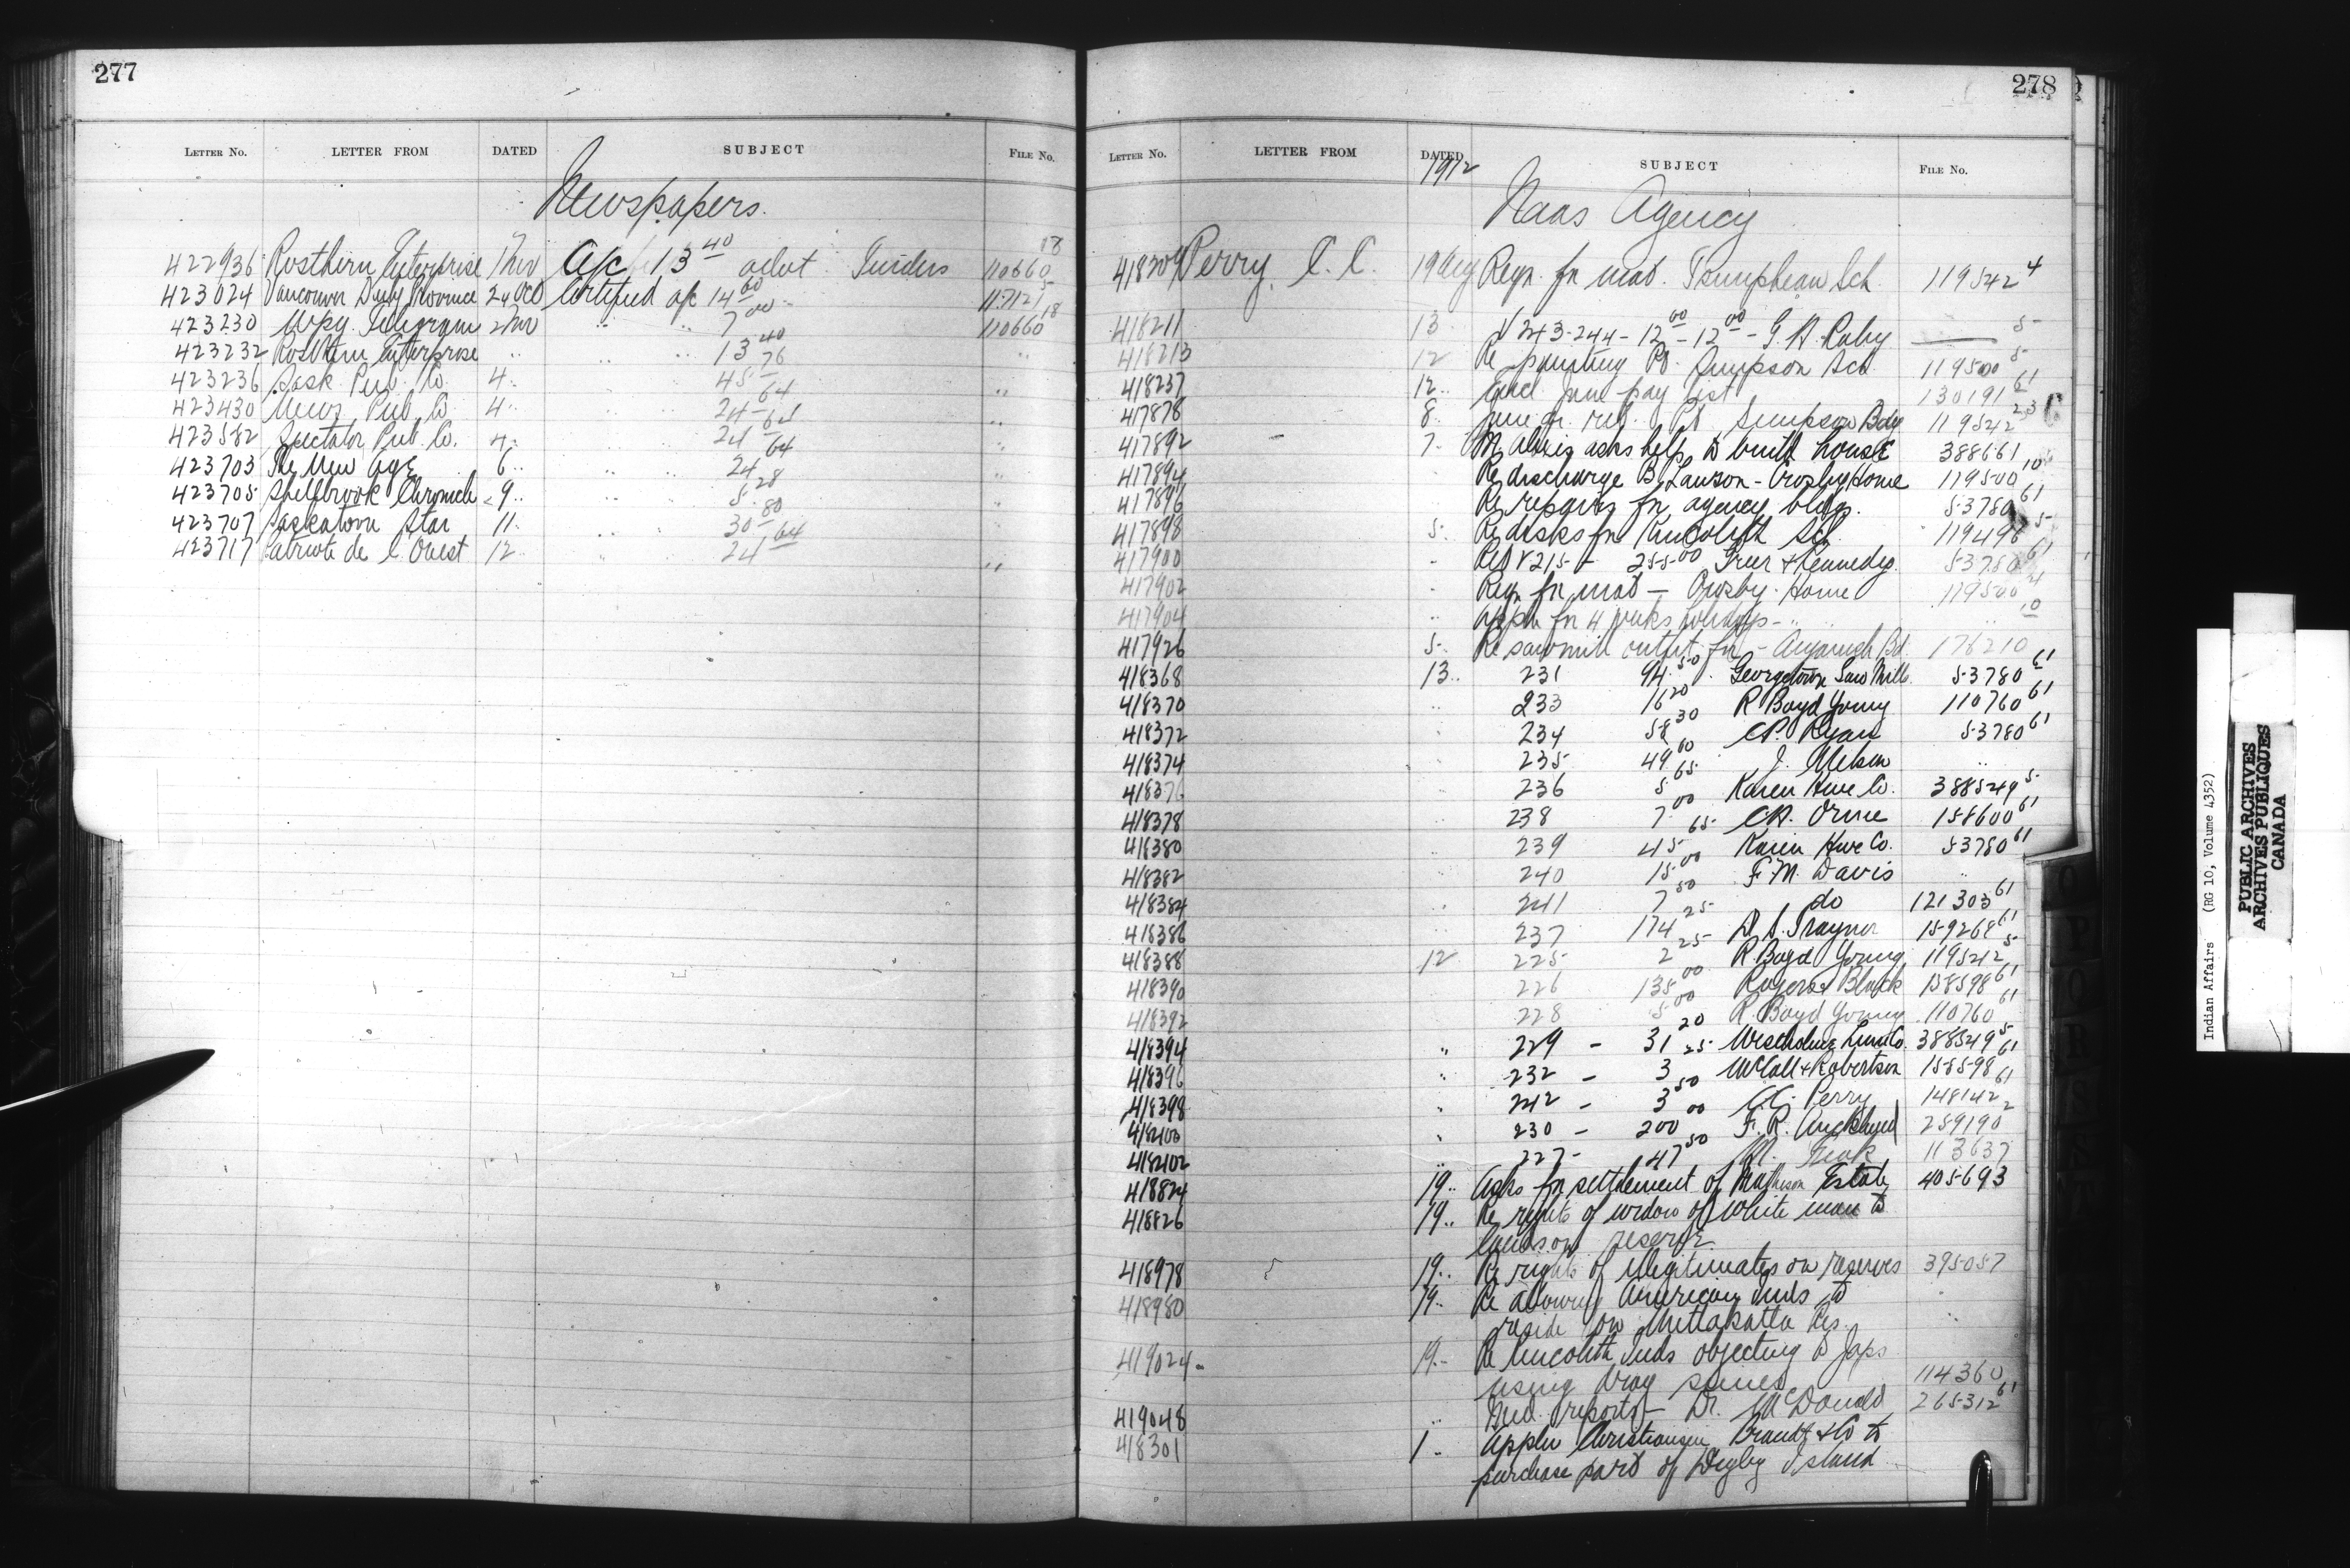 277
LETTER NO. LETTER FROM DATED SUBJECT FILE NO.
Newspapers.
422936 Rosthern Enterprise 1 Nov A/c 13 40 advt Tenders 110660 18
423024 Vancouver Daily Province 24 Oct Certified a/c 14 00 117121 5
423230 Wpg. Telegram 2 Nov " " 7 00 110660 18
423232 Rosthern Enterprise " " " 13 40 "
423236 Sask. Pub. Co. 4 " " 45 76
423430 News Pub. Co. 4 " " 24 64 "
423582 Spectator Pub. Co. 4 " " 24 64 "
423703 The New Age 6 " " 24 64 "
423705 Shellbrook Chronicle 9 " " 5 28 "
423707 Saskatoon Star 11 " " 30 80 "
423717 Patriote de l'Ouest 12 " " 24 64 "
278
LETTER NO. LETTER FROM DATED SUBJECT FILE NO.
1912
Naas Agency
418209 Perry, C. C. 19 Aug Reqn. for mat. Tsimpshean Sch. 119542 4
418211 13 V 243-244 - 12 00 - 12 00 - G. A. Raby 5
418213 12 Re painting Pt. Simpson Sch. 119500 5
418237 12 Encl. June pay list 130191 61
417878 8 June qr. ret. Pt. Simpson Bdg 119542 23
417892 7 M. Alexis asks help to build house 388661
417894 Re discharge B. Lawson - Crosby Home 119500 10
417896 Re repairs for agency bldgs. 53780 61
417898 5 Re desks for Kincolith Sch. 119496 5
417900 " Ret V 215 - 255 00 Greer & Kennedy. 53780 61
417902 " Reqn for mat - Crosby Home 119500 4
417904 " Appln for 4 weeks holidays - " " 10
417926 5 Re sawmill outfit for - Aiyansh Bd. 176210
418368 13 231 94 50 Georgetown Saw Mills 53780 61
418370 " 233 16 20 R Boyd Young 110760 61
418372 " 234 58 30 C.P. Ryan 53780 61
418374 " 235 49 60 J. Nelson "
418376 " 236 5 65 Kaien Hwe Co. 388549 5
418378 " 238 7 00 C.H. Orme 158600 61
418380 " 239 45 65 Kaien Hwe Co. 53780 61
418382 " 240 15 00 F. M. Davis "
418384 " 241 7 50 do 121303 61
418386 " 237 174 25 W. S. Traynor 159268 61
418388 12 225 2 25 R. Boyd Young 119542 5
418390 226 135 00 Rogers & Black 158598 61
418392 228 5 00 R. Boyd Young 110760 61
418394 " 229 - 31 20 Westholme Lum Co. 388549 5
418396 " 232 - 3 25 McCall & Robertson 158598 61
418398 " 242 - 3 50 C.C. Perry 148142 61
418400 " 230 - 200 00 F. R. Auckland 289190 2
418402 " 227 - 47 50 113637
418824 19 " Asks for settlement of Matheson Estate 405693
418826 19 " Re rights of widow of white man to
land on reserve
418978 19 " Re rights of illegitimates on reserves 395057
418980 19 " Re allowing American Inds to
reside on Metlakatla Res. "
419024 19 " Re Kincolith Inds objecting to Japs
using drag seines 114360
419048 " Med. reports - Dr. McDonald 265312 61
418301 1 " Appln Christiansen Brandt & Co to
purchase part of Digby Island
Indian Affairs (RG 10, Volume 4352)
PUBLIC ARCHIVES
ARCHIVES PUBLIQUES
CANADA